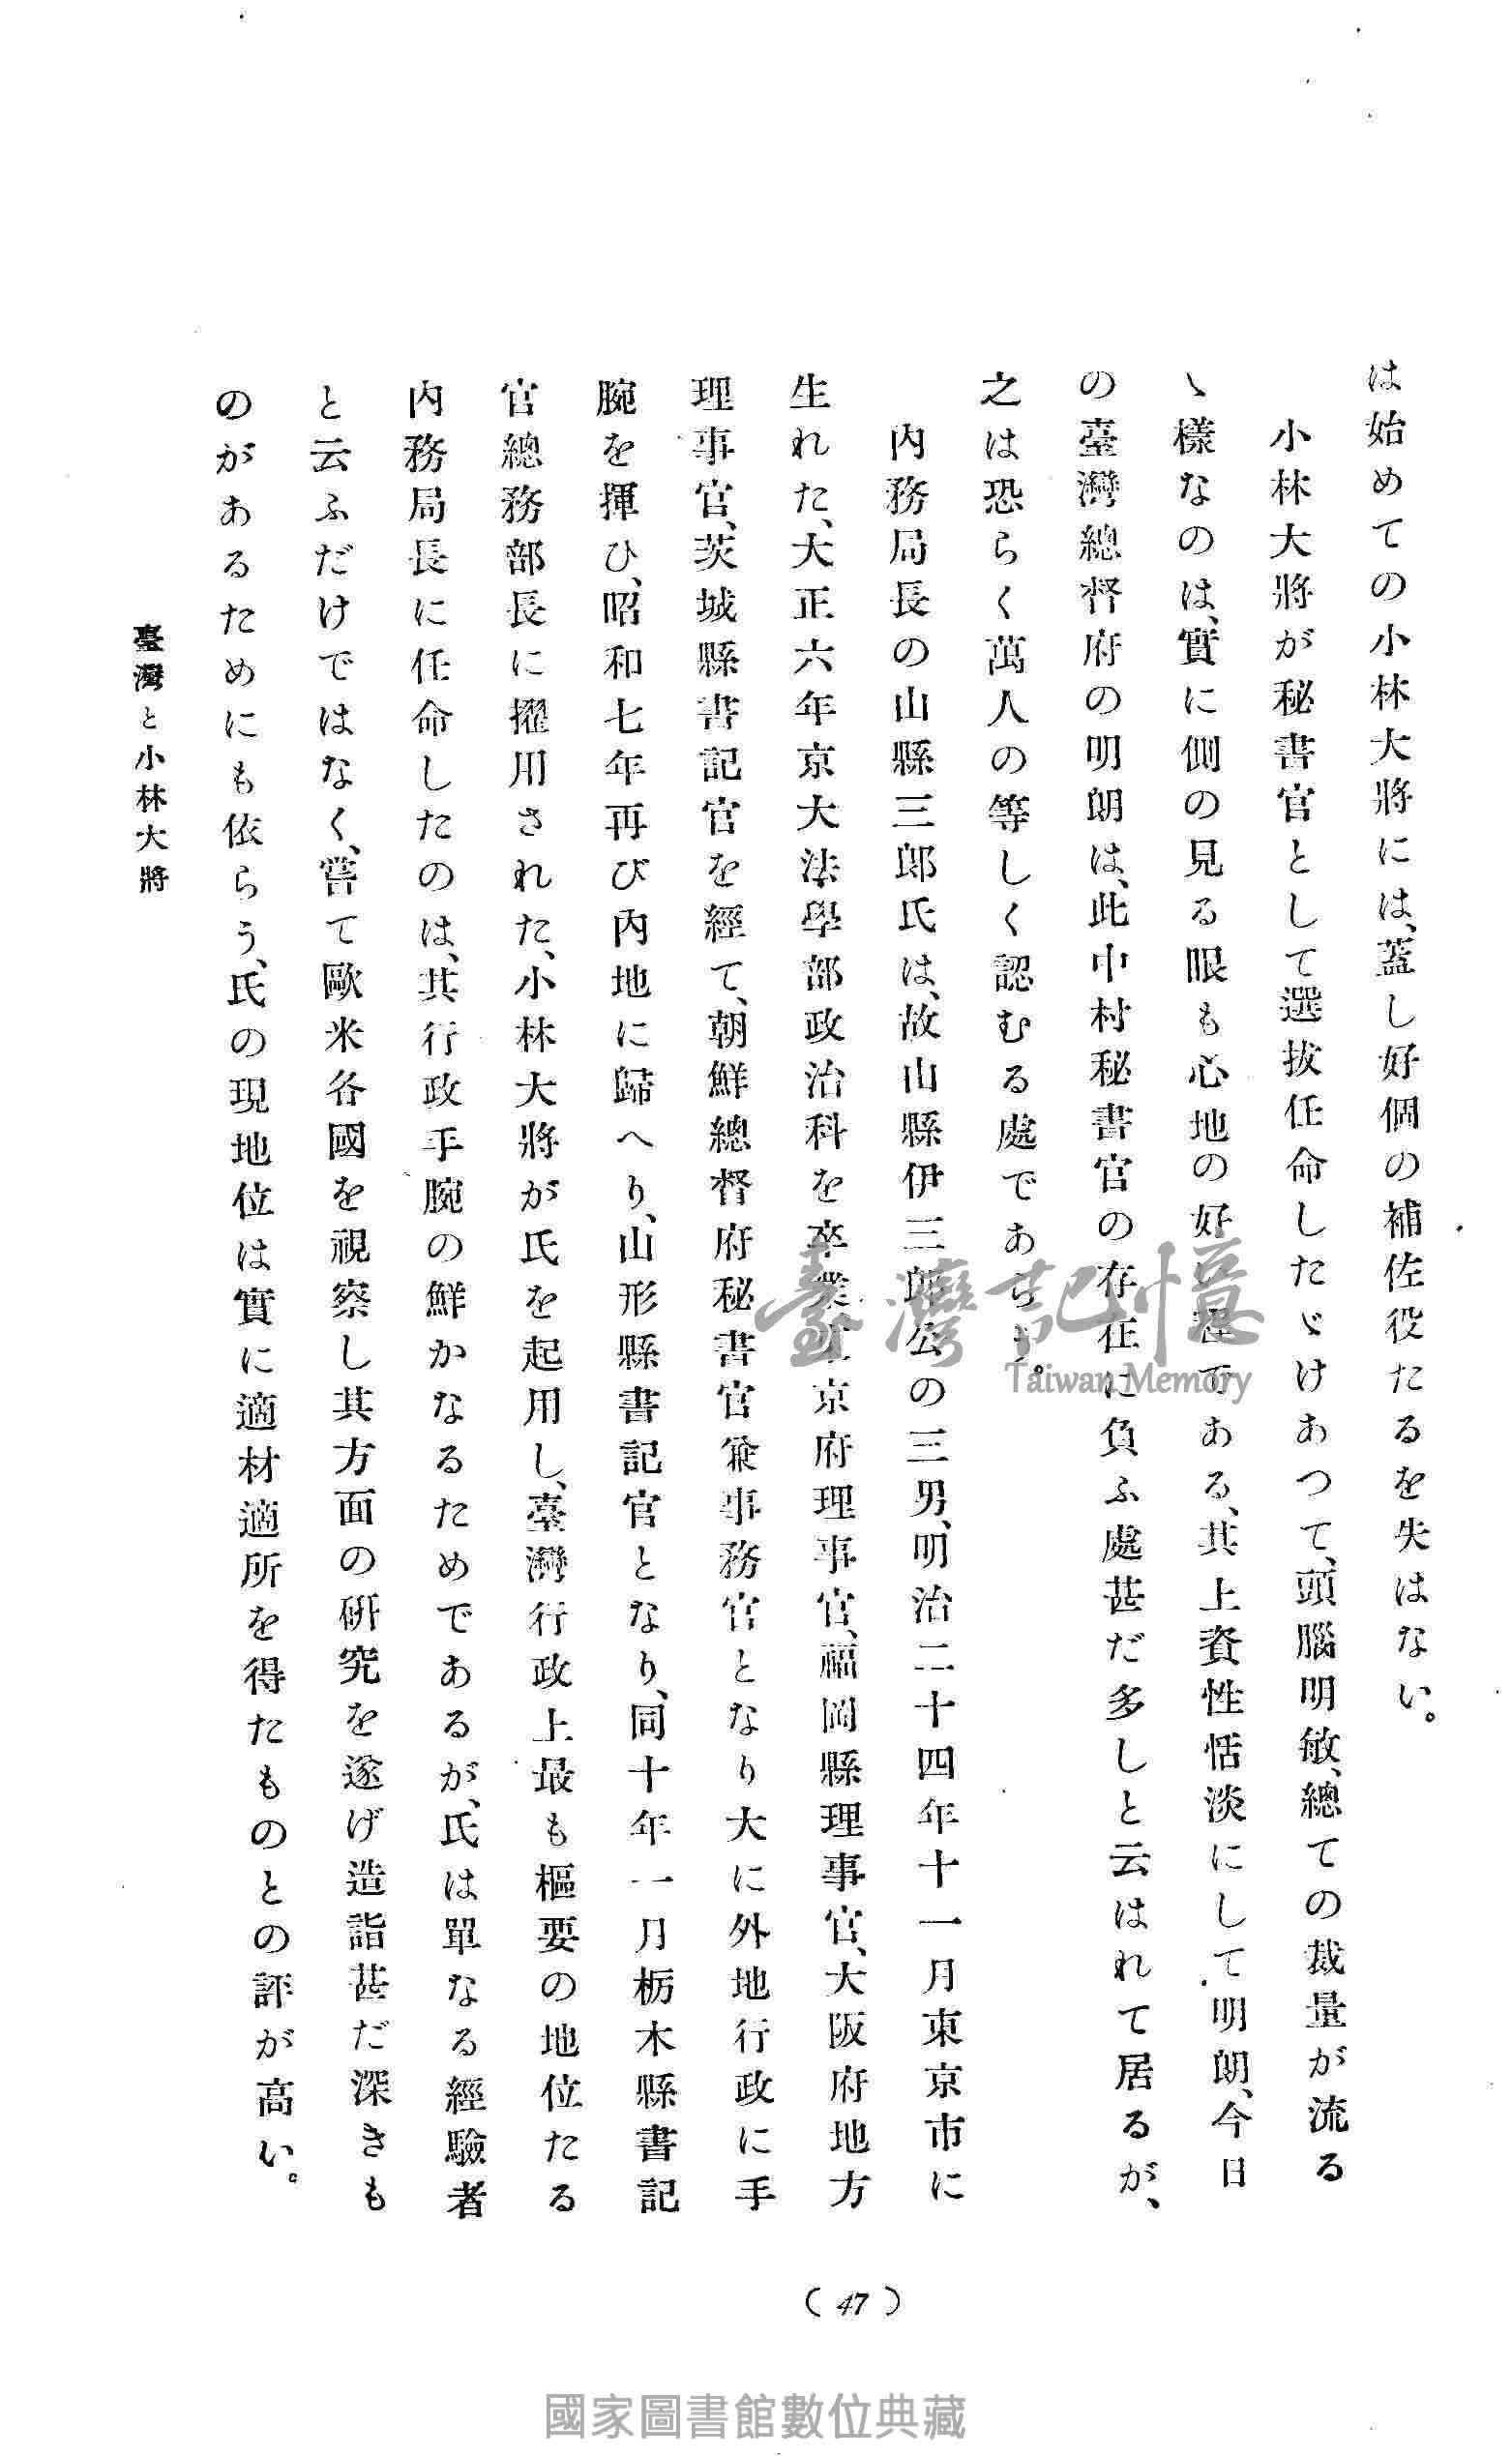 は始めての小林大將には、蓋し好個の補佐役たるを失はない。
小林大將が秘書官として選拔任命したゞけあつて、頭腦明敏、總ての裁量が流る
ゝ樣なのは、實に側の見る眼も心地の好い程である、其上資性恬淡にして明朗、今日
の臺灣總督府の明朗は、此中村秘書官の存在に負ふ處甚だ多しと云はれて居るが、
之は恐らく萬人の等しく認むる處であらう。
内務局長の山縣三郎氏は、故山縣伊三郎公の三男、明治二十四年十一月東京市に
生れた、大正六年京大法學部政治科を卒業し京府理事官、福岡縣理事官、大阪府地方
理事官、茨城縣書記官を經て、朝鮮總督府秘書官兼事務官となり大に外地行政に手
腕を揮ひ、昭和七年再び内地に歸へり、山形縣書記官となり、同十年一月栃木縣書記
官總務部長に擢用された、小林大將が氏を起用し、臺灣行政上最も樞要の地位たる
内務局長に任命したのは、其行政手腕の鮮かなるためであるが、氏は單なる經驗者
と云ふだけではなく、嘗て歐米各國を視察し其方面の硏究を遂げ造詣甚だ深きも
のがあるためにも依らう、氏の現地位は實に適材適所を得たものとの評が高い。
臺灣と小林大將
( 47 )
臺灣記憶
Taiwan Memory
國家圖書館數位典藏